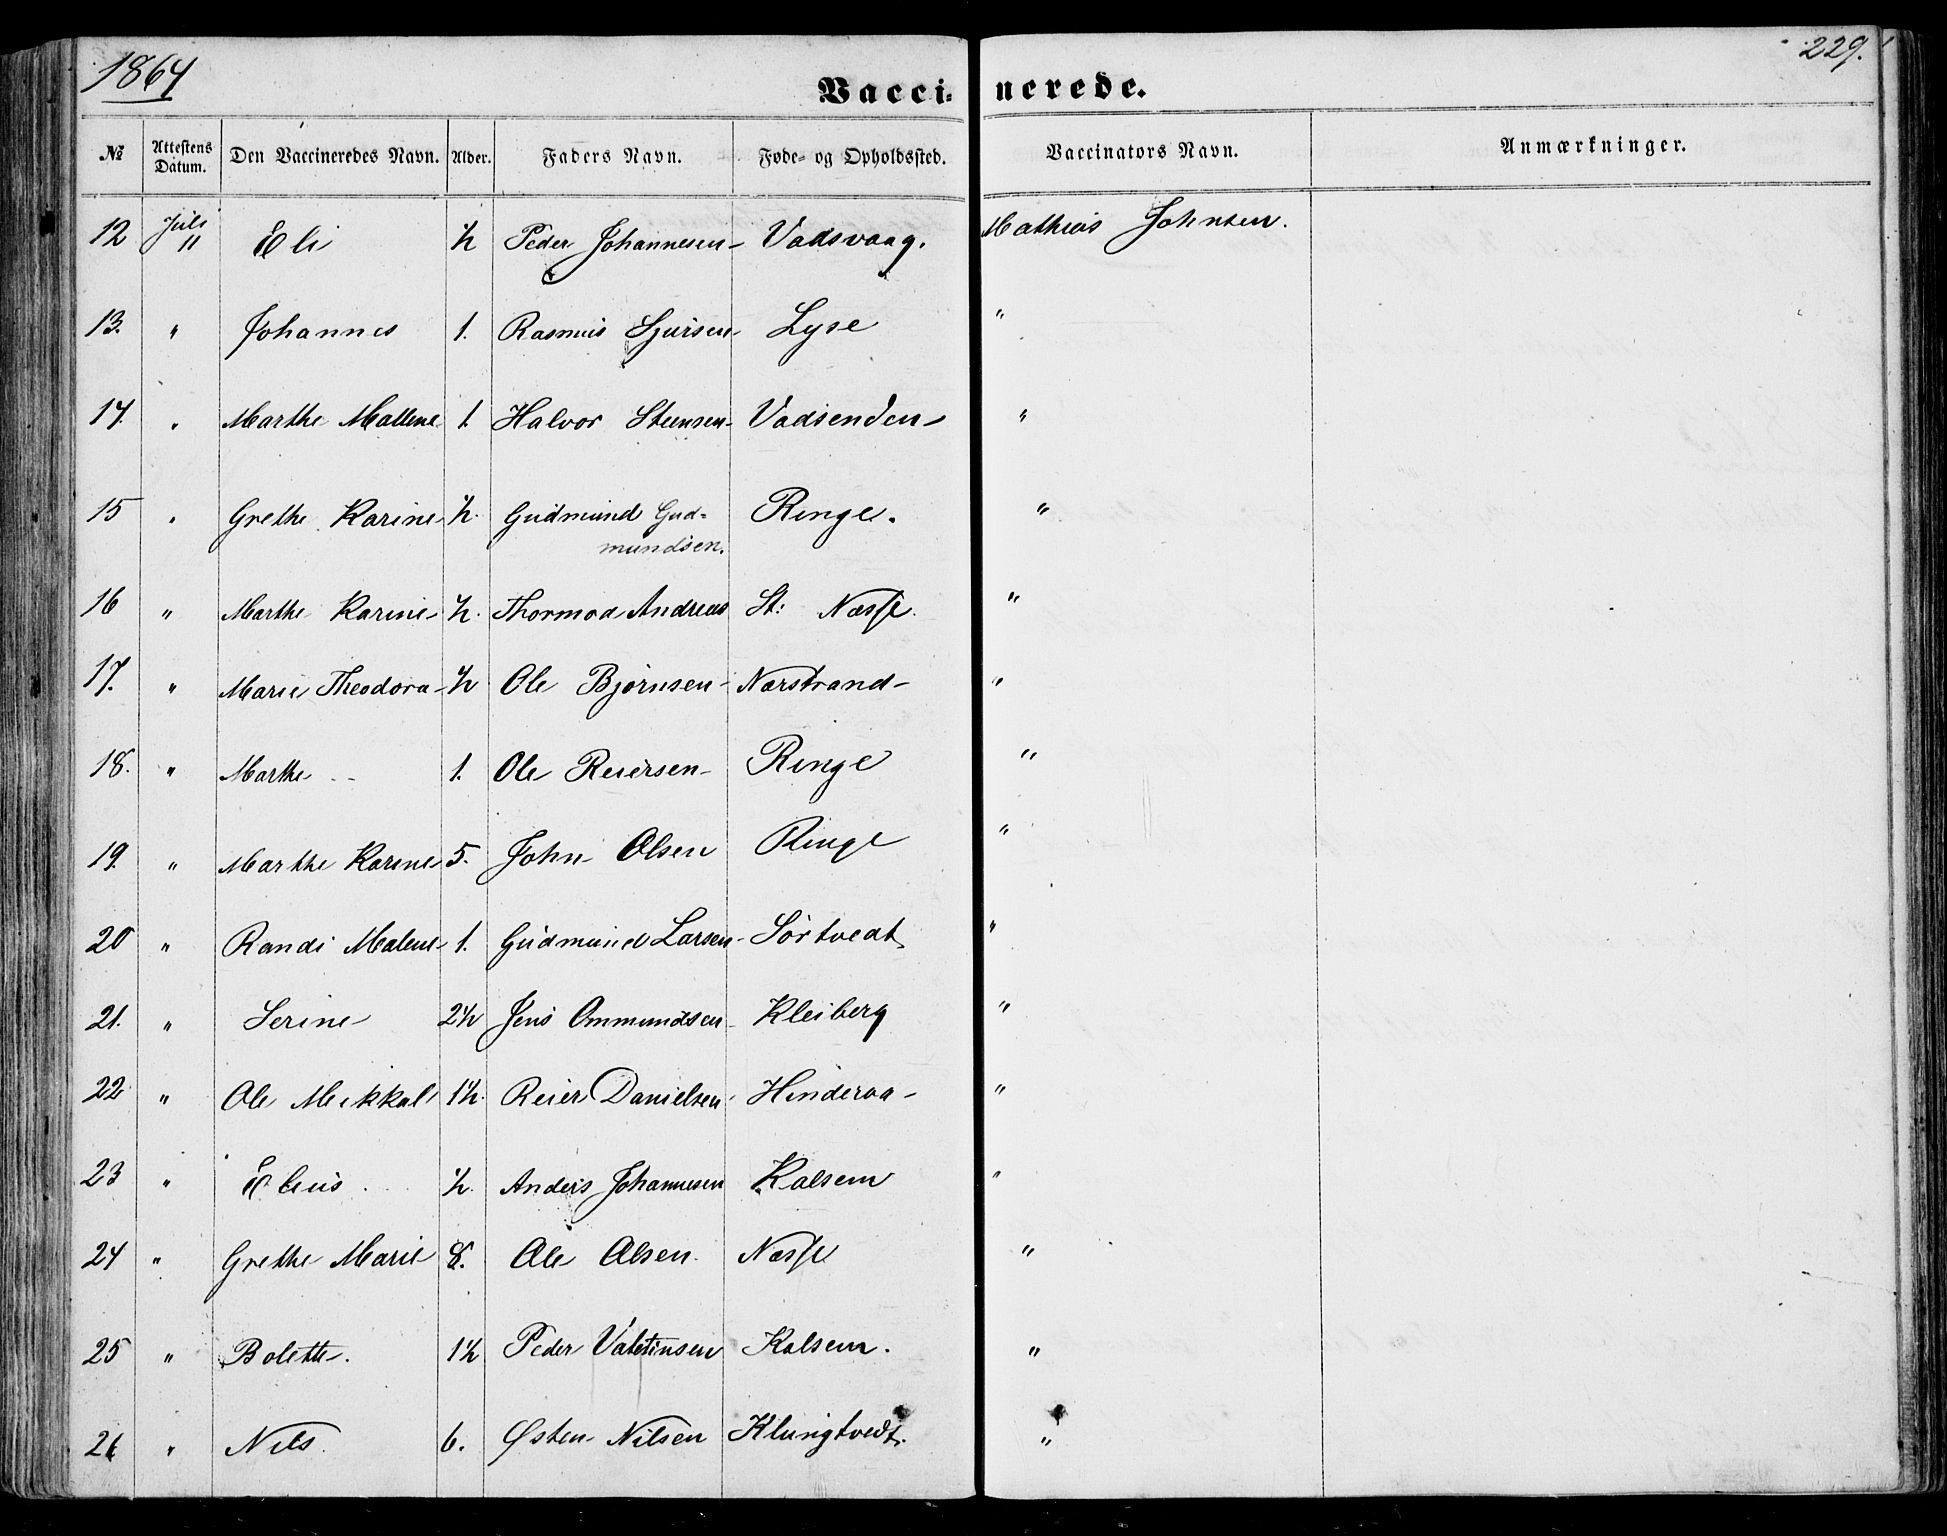 1864
229.
Vaccinerede.
№ Attestens Datum. Den Vaccineredes Navn. Alder. Faders Navn. Føde- og Opholdssted. Vaccinators Navn. Anmærkninger.
12 Juli 11 Eli ½ Peder Johannesen Vadsvaag. Mathias Johnsen.
13. " Johannes 1. Rasmus Sjursen Lyse "
14. " Marthe Mallene 1. Halvor Steensen Vadsenden "
15 " Grethe Karine ½. Gudmund Gud=
mundsen. Ringe. "
16 " Marthe Karine ½. Thormod Andreas St: Næsse. "
17. " Marie Theodora ½ Ole Bjørnsen Nærstrand "
18. " Marthe 1. Ole Reiersen Ringe "
19. " Marthe Karine 5. John Olsen Ringe "
20 " Randi Malene 1. Gudmund Larsen Sørtvedt "
21. " Serine 2½ Jens Ommundsen Kleiberg "
22 " Ole Mikkal 1½. Reier Danielsen Hinderaa "
23 " Elius ½. Anders Johannesen Kalsem "
24 " Grethe Marie 8. Ole Olsen Næsse "
25 " Bolette. 1½ Peder Valetinsen Kalsem. "
26 " Nils. 6. Østen Nilsen Klungtvedt. "